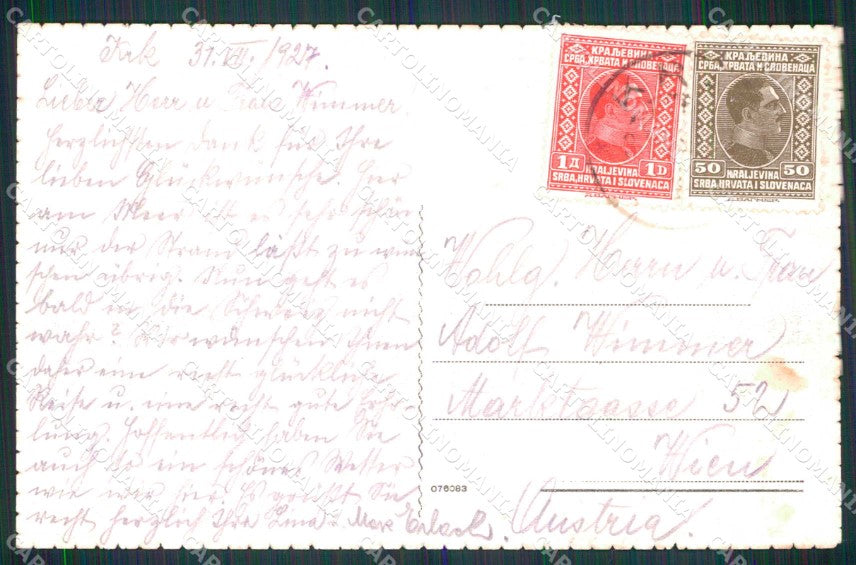 Krk 31.VII.1927.
Liebe Herr u Frau Wimmer.
Herzlichsten Dank für Ihre
lieben Glückwünsche. Hier
am Meer ist es sehr schön
nur der Strand läßt zu wün
schen übrig. Nun geht es
bald in die Schweiz nicht
wahr? Wir wünschen Ihnen
daher eine recht glückliche
Reise u. eine recht gute Erho
lung. Hoffentlich haben Sie
auch so ein schönes Wetter
wie wir hier. Es grüßt Sie
recht herzlich Ihre Lina. Max
КРАЉЕВИНА
СРБА, ХРВАТА И СЛОВЕНАЦА
1Д 1D
KRALJEVINA
SRBA, HRVATA I SLOVENACA
КРАЉЕВИНА
СРБА, ХРВАТА И СЛОВЕНАЦА
50 50
KRALJEVINA
SRBA, HRVATA I SLOVENACA
Wohlg. Herrn u. Frau
Adolf Wimmer
Marktgasse 52
Wien
Austria.
076083
CARTOLINOMANIA